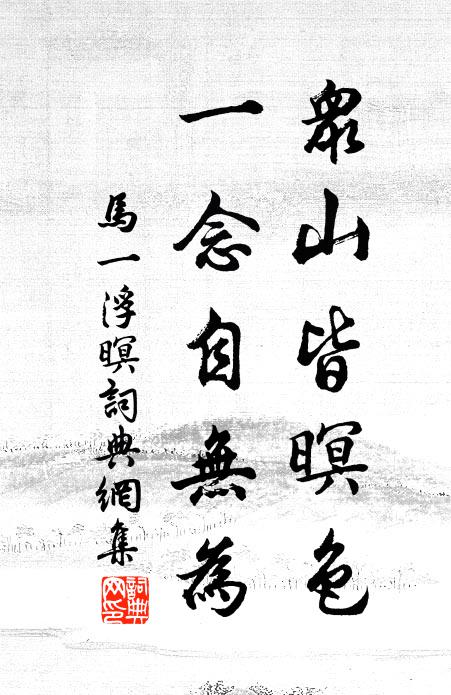 眾山皆暝色
一念自無為
馬一浮暝詞典網集
詞典網印